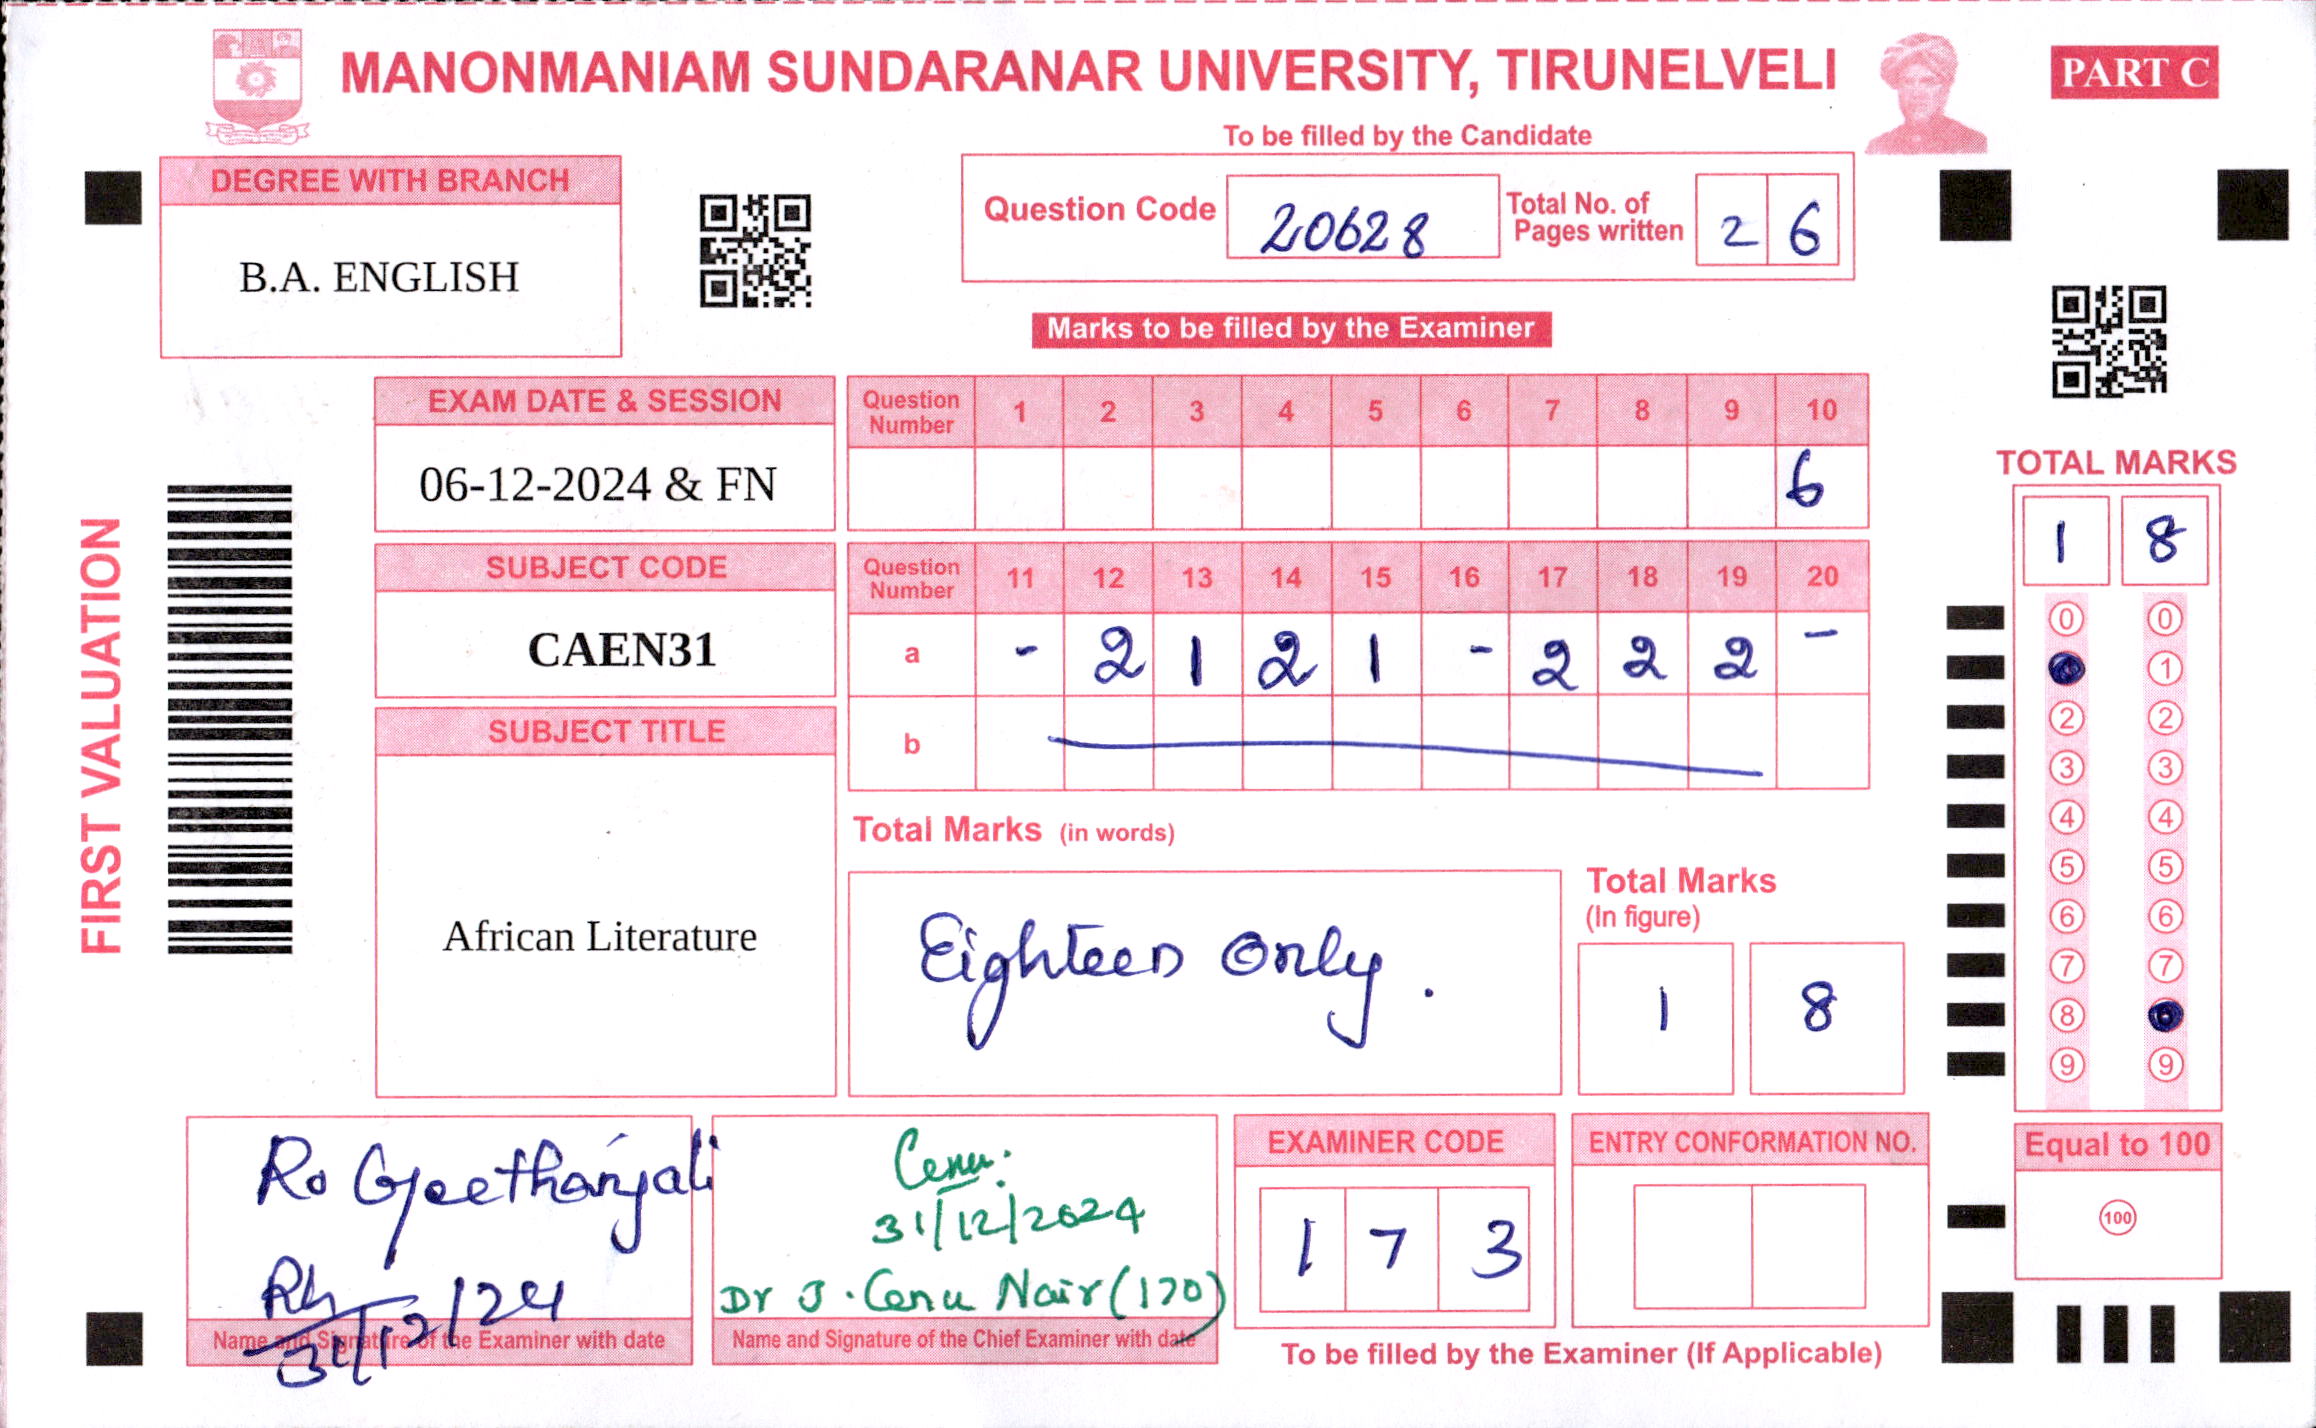 MANONMANIAM SUNDARANAR UNIVERSITY, TIRUNELVELI
PART C
To be filled by the Candidate
DEGREE WITH BRANCH
B.A. ENGLISH
Question Code 20628 Total No. of Pages written 2 6
Marks to be filled by the Examiner
EXAM DATE & SESSION
06-12-2024 & FN
Question Number 1 2 3 4 5 6 7 8 9 10
6
SUBJECT CODE
CAEN31
Question Number 11 12 13 14 15 16 17 18 19 20
a - 2 1 2 1 - 2 2 2 -
b
SUBJECT TITLE
African Literature
FIRST VALUATION
Total Marks (in words)
Eighteen Only.
Total Marks
(In figure)
1 8
TOTAL MARKS
1 8
0 0
1
2 2
3 3
4 4
5 5
6 6
7 7
8
9 9
Equal to 100
100
R. Geethanjali
31/12/24
Name and Signature of the Examiner with date
Cenu.
31/12/2024
Dr J. Cenu Nair (170)
Name and Signature of the Chief Examiner with date
EXAMINER CODE
1 7 3
ENTRY CONFORMATION NO.
To be filled by the Examiner (If Applicable)